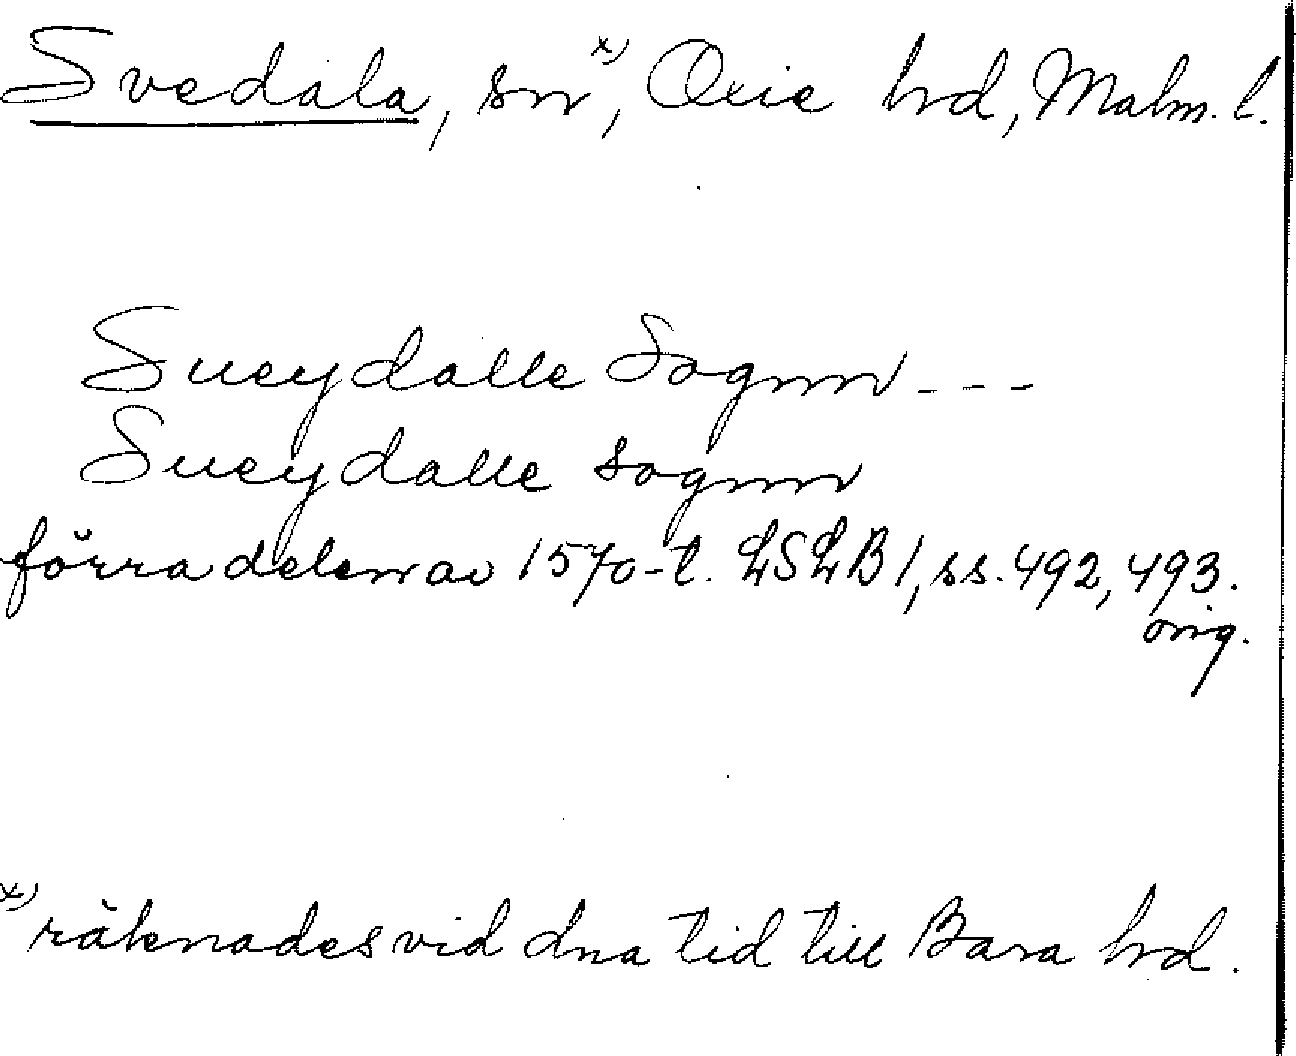 Svedala, sn x), Oxie hd, Malm. l.
Sueydalle Sognn - - -
Sueydalle sognn
förra delen av 1570-t. LSLB 1, ss. 492, 493.
orig.
x) räknades vid dna tid till Bara hd.